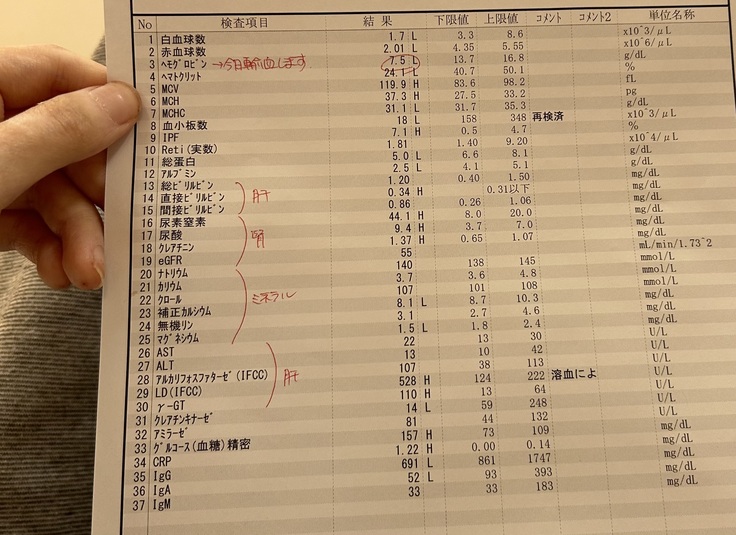 No 検査項目 結果 下限値 上限値 コメント コメント2 単位名称
1 白血球数 1.7 L 3.3 8.6 x10^3/μL
2 赤血球数 2.01 L 4.35 5.55 x10^6/μL
3 ヘモグロビン →今日輸血します 7.5 L 13.7 16.8 g/dL
4 ヘマトクリット 24.1 L 40.7 50.1 %
5 MCV 119.9 H 83.6 98.2 fL
6 MCH 37.3 H 27.5 33.2 pg
7 MCHC 31.1 L 31.7 35.3 g/dL
8 血小板数 18 L 158 348 再検済 x10^3/μL
9 IPF 7.1 H 0.5 4.7 %
10 Reti(実数) 1.81 1.40 9.20 x10^4/μL
11 総蛋白 5.0 L 6.6 8.1 g/dL
12 アルブミン 2.5 L 4.1 5.1 g/dL
13 総ビリルビン 1.20 0.40 1.50 mg/dL
14 直接ビリルビン 肝 0.34 H 0.31以下 mg/dL
15 間接ビリルビン 0.86 0.26 1.06 mg/dL
16 尿素窒素 44.1 H 8.0 20.0 mg/dL
17 尿酸 腎 9.4 H 3.7 7.0 mg/dL
18 クレアチニン 1.37 H 0.65 1.07 mg/dL
19 eGFR 55 mL/min/1.73^2
20 ナトリウム 140 138 145 mmol/L
21 カリウム 3.7 3.6 4.8 mmol/L
22 クロール ミネラル 107 101 108 mmol/L
23 補正カルシウム 8.1 L 8.7 10.3 mg/dL
24 無機リン 3.1 2.7 4.6 mg/dL
25 マグネシウム 1.5 L 1.8 2.4 mg/dL
26 AST 22 13 30 U/L
27 ALT 13 10 42 U/L
28 アルカリフォスファターゼ(IFCC) 肝 107 38 113 U/L
29 LD(IFCC) 528 H 124 222 溶血によ U/L
30 γ-GT 110 H 13 64 U/L
31 クレアチンキナーゼ 14 L 59 248 U/L
32 アミラーゼ 81 44 132 U/L
33 グルコース(血糖)精密 157 H 73 109 mg/dL
34 CRP 1.22 H 0.00 0.14 mg/dL
35 IgG 691 L 861 1747 mg/dL
36 IgA 52 L 93 393 mg/dL
37 IgM 33 33 183 mg/dL